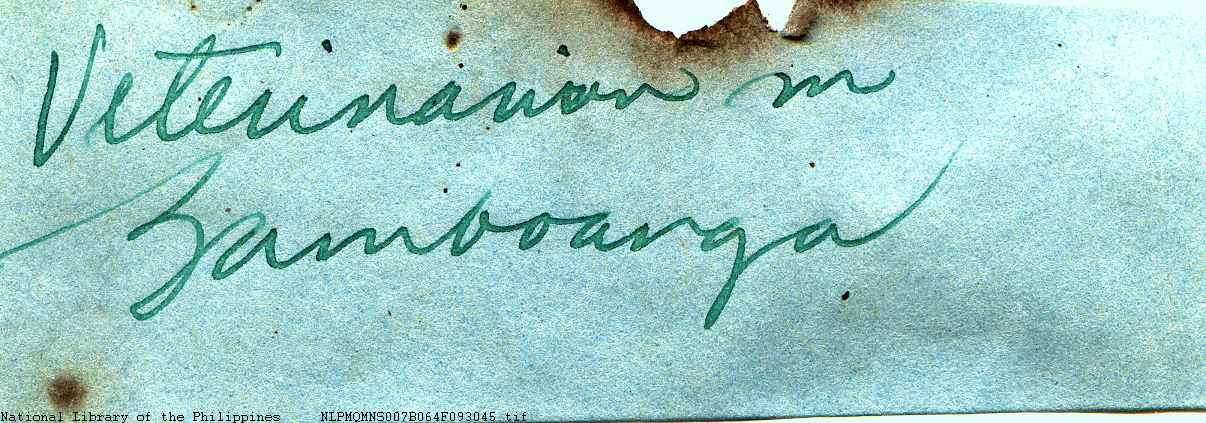 Veterinarian in
Zamboanga
National Library of the Philippines NLPMQMNS007B064F093045.tif